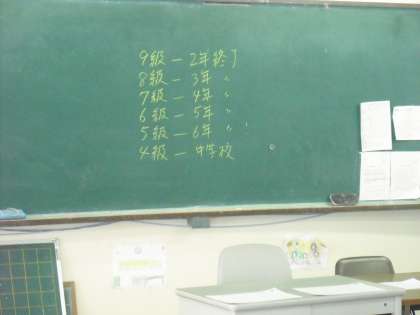 9級 — 2年終了
8級 — 3年 〃
7級 — 4年 〃
6級 — 5年 〃
5級 — 6年 〃
4級 — 中学校